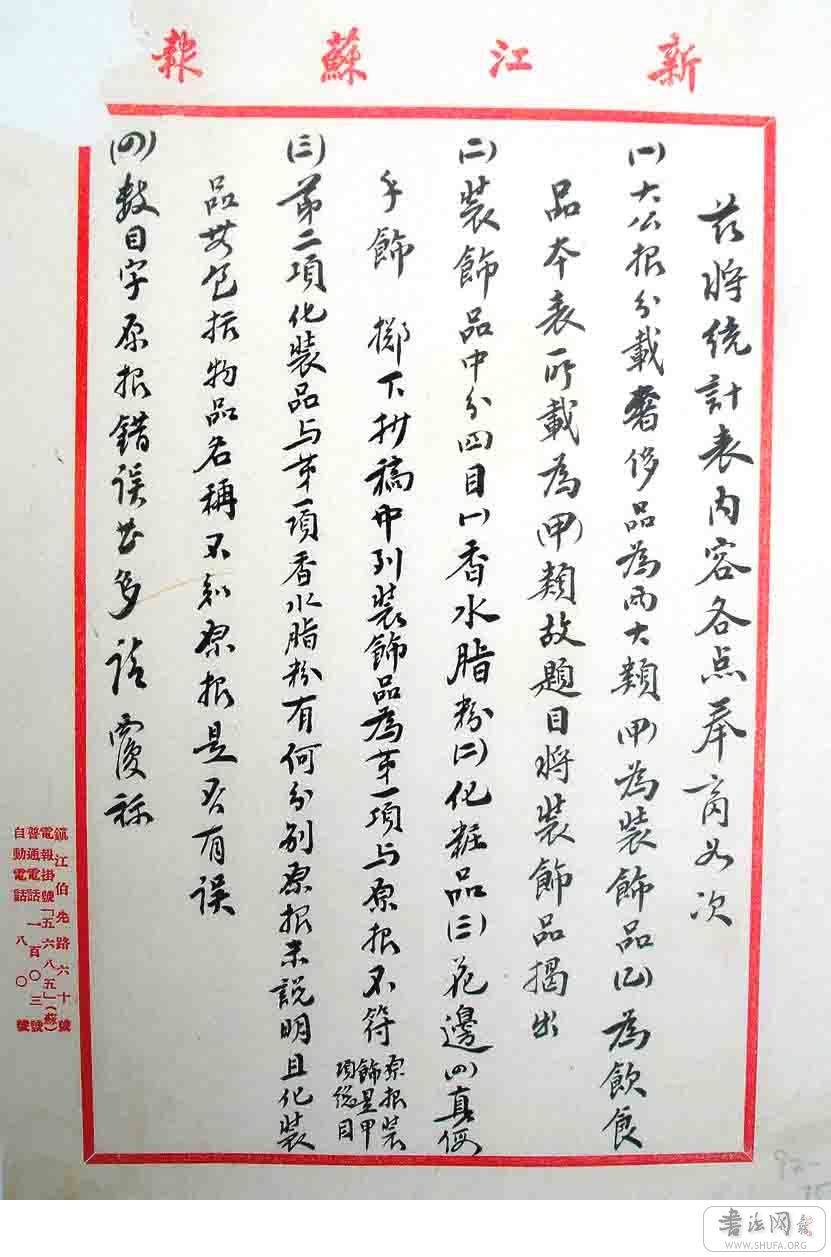 新江蘇報
茲將統計表內容各点奉商如次
(一)大公报分載奢侈品為兩大類(甲)為裝飾品(乙)為飲食
品本表所載為(甲)類故題目將裝飾品揭出
(二)裝飾品中分四目(一)香水脂粉(二)化粧品(三)花邊(四)真偽
手飾 擲下抄稿中列裝飾品為第一項与原报不符
原报装
飾是甲
項總目
(三)第二項化裝品与第一項香水脂粉有何分别原报未説明且化裝
品共包括物品名稱不知原报是否有误
(四)数目字原报錯误甚多請覆核
鎮江伯先路六十號
電報掛號「五六八五」(蘇)
普通電話一百〇三號
自動電話八〇號
97-
15
書法网
WWW.SHUFA.ORG